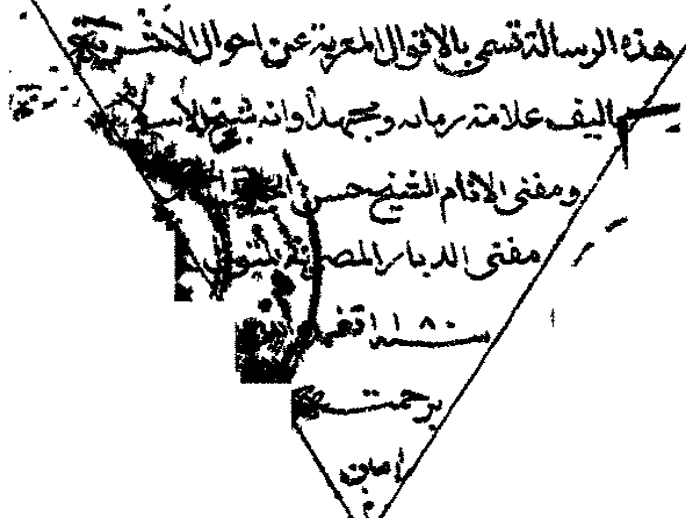 هذه الرسالة تسمى بالاقوال المعربة عن احوال الاشربة
تاليف علامة زمانه ومجتهد اوانه شيخ الاسلام
ومفتى الانام الشيخ حسن
مفتى الديار المصرية المتوفى
سنة ١١٨٠
برحمته
امين